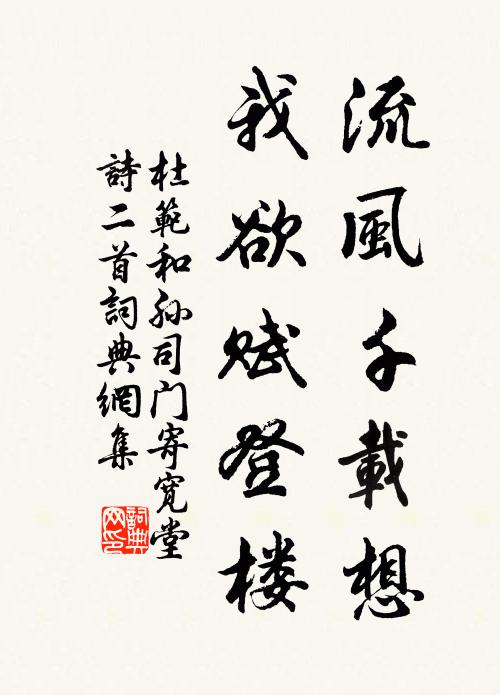 流風千載想
我欲赋登楼
杜範和孙司门寄寬堂
詩二首詞典網集
詞典网印